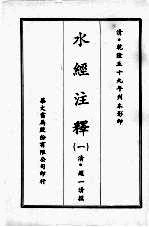 清·乾隆五十九年刊本影印
水經注釋
(一)
清·趙一清撰
華文書局股份有限公司印行